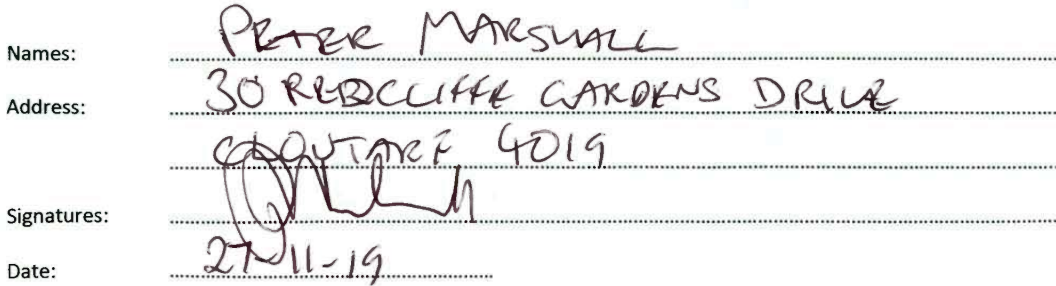 Names: PETER MARSHALL
Address: 30 REDCLIFFE GARDENS DRIVE
CLONTARF 4019
Signatures:
Date: 27-11-19